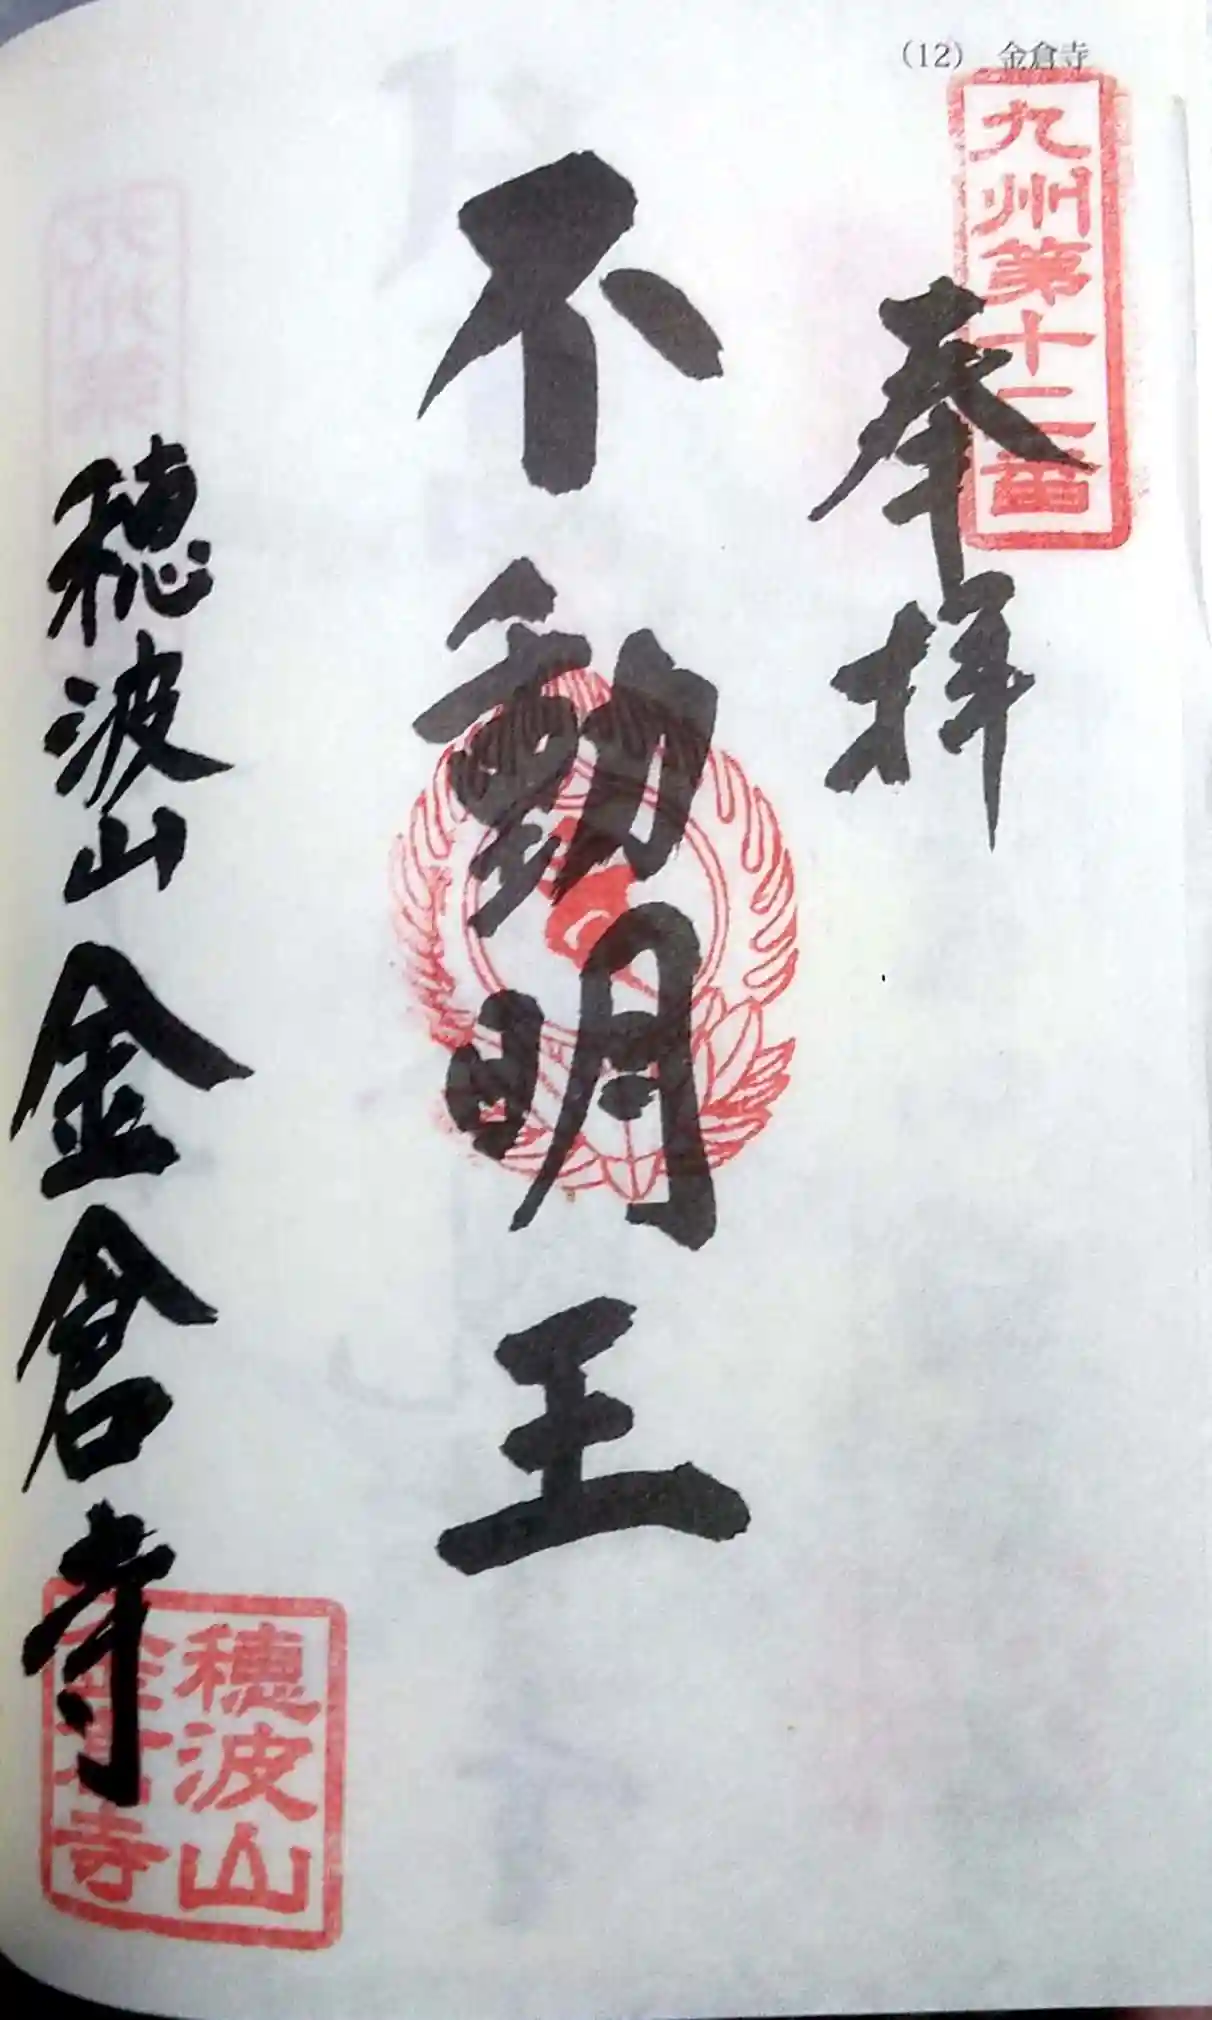 (12) 金倉寺
九州第十二番
奉拝
不動明王
穂波山金倉寺
穂波山
金倉寺